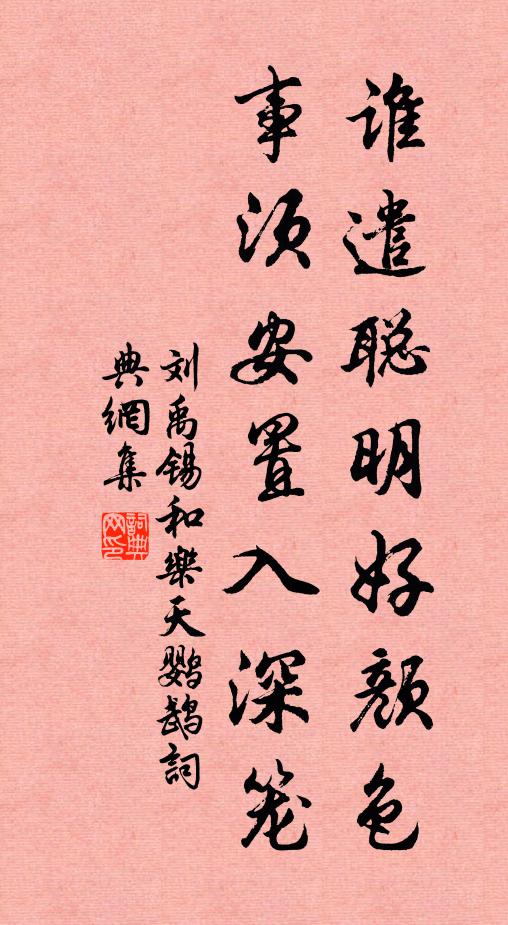 谁遣聪明好颜色
事须安置入深笼
刘禹锡和樂天鹦鹉詞
典網集
詞典网印